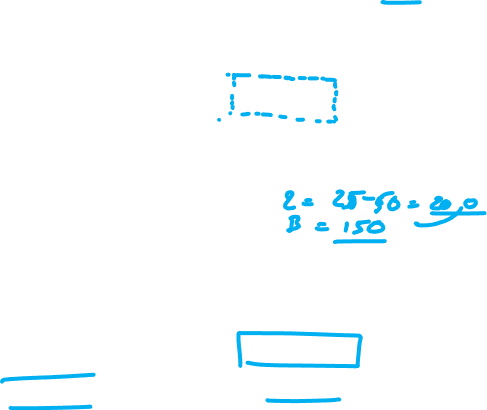 2 = 25-50 = 20,0
B = 150